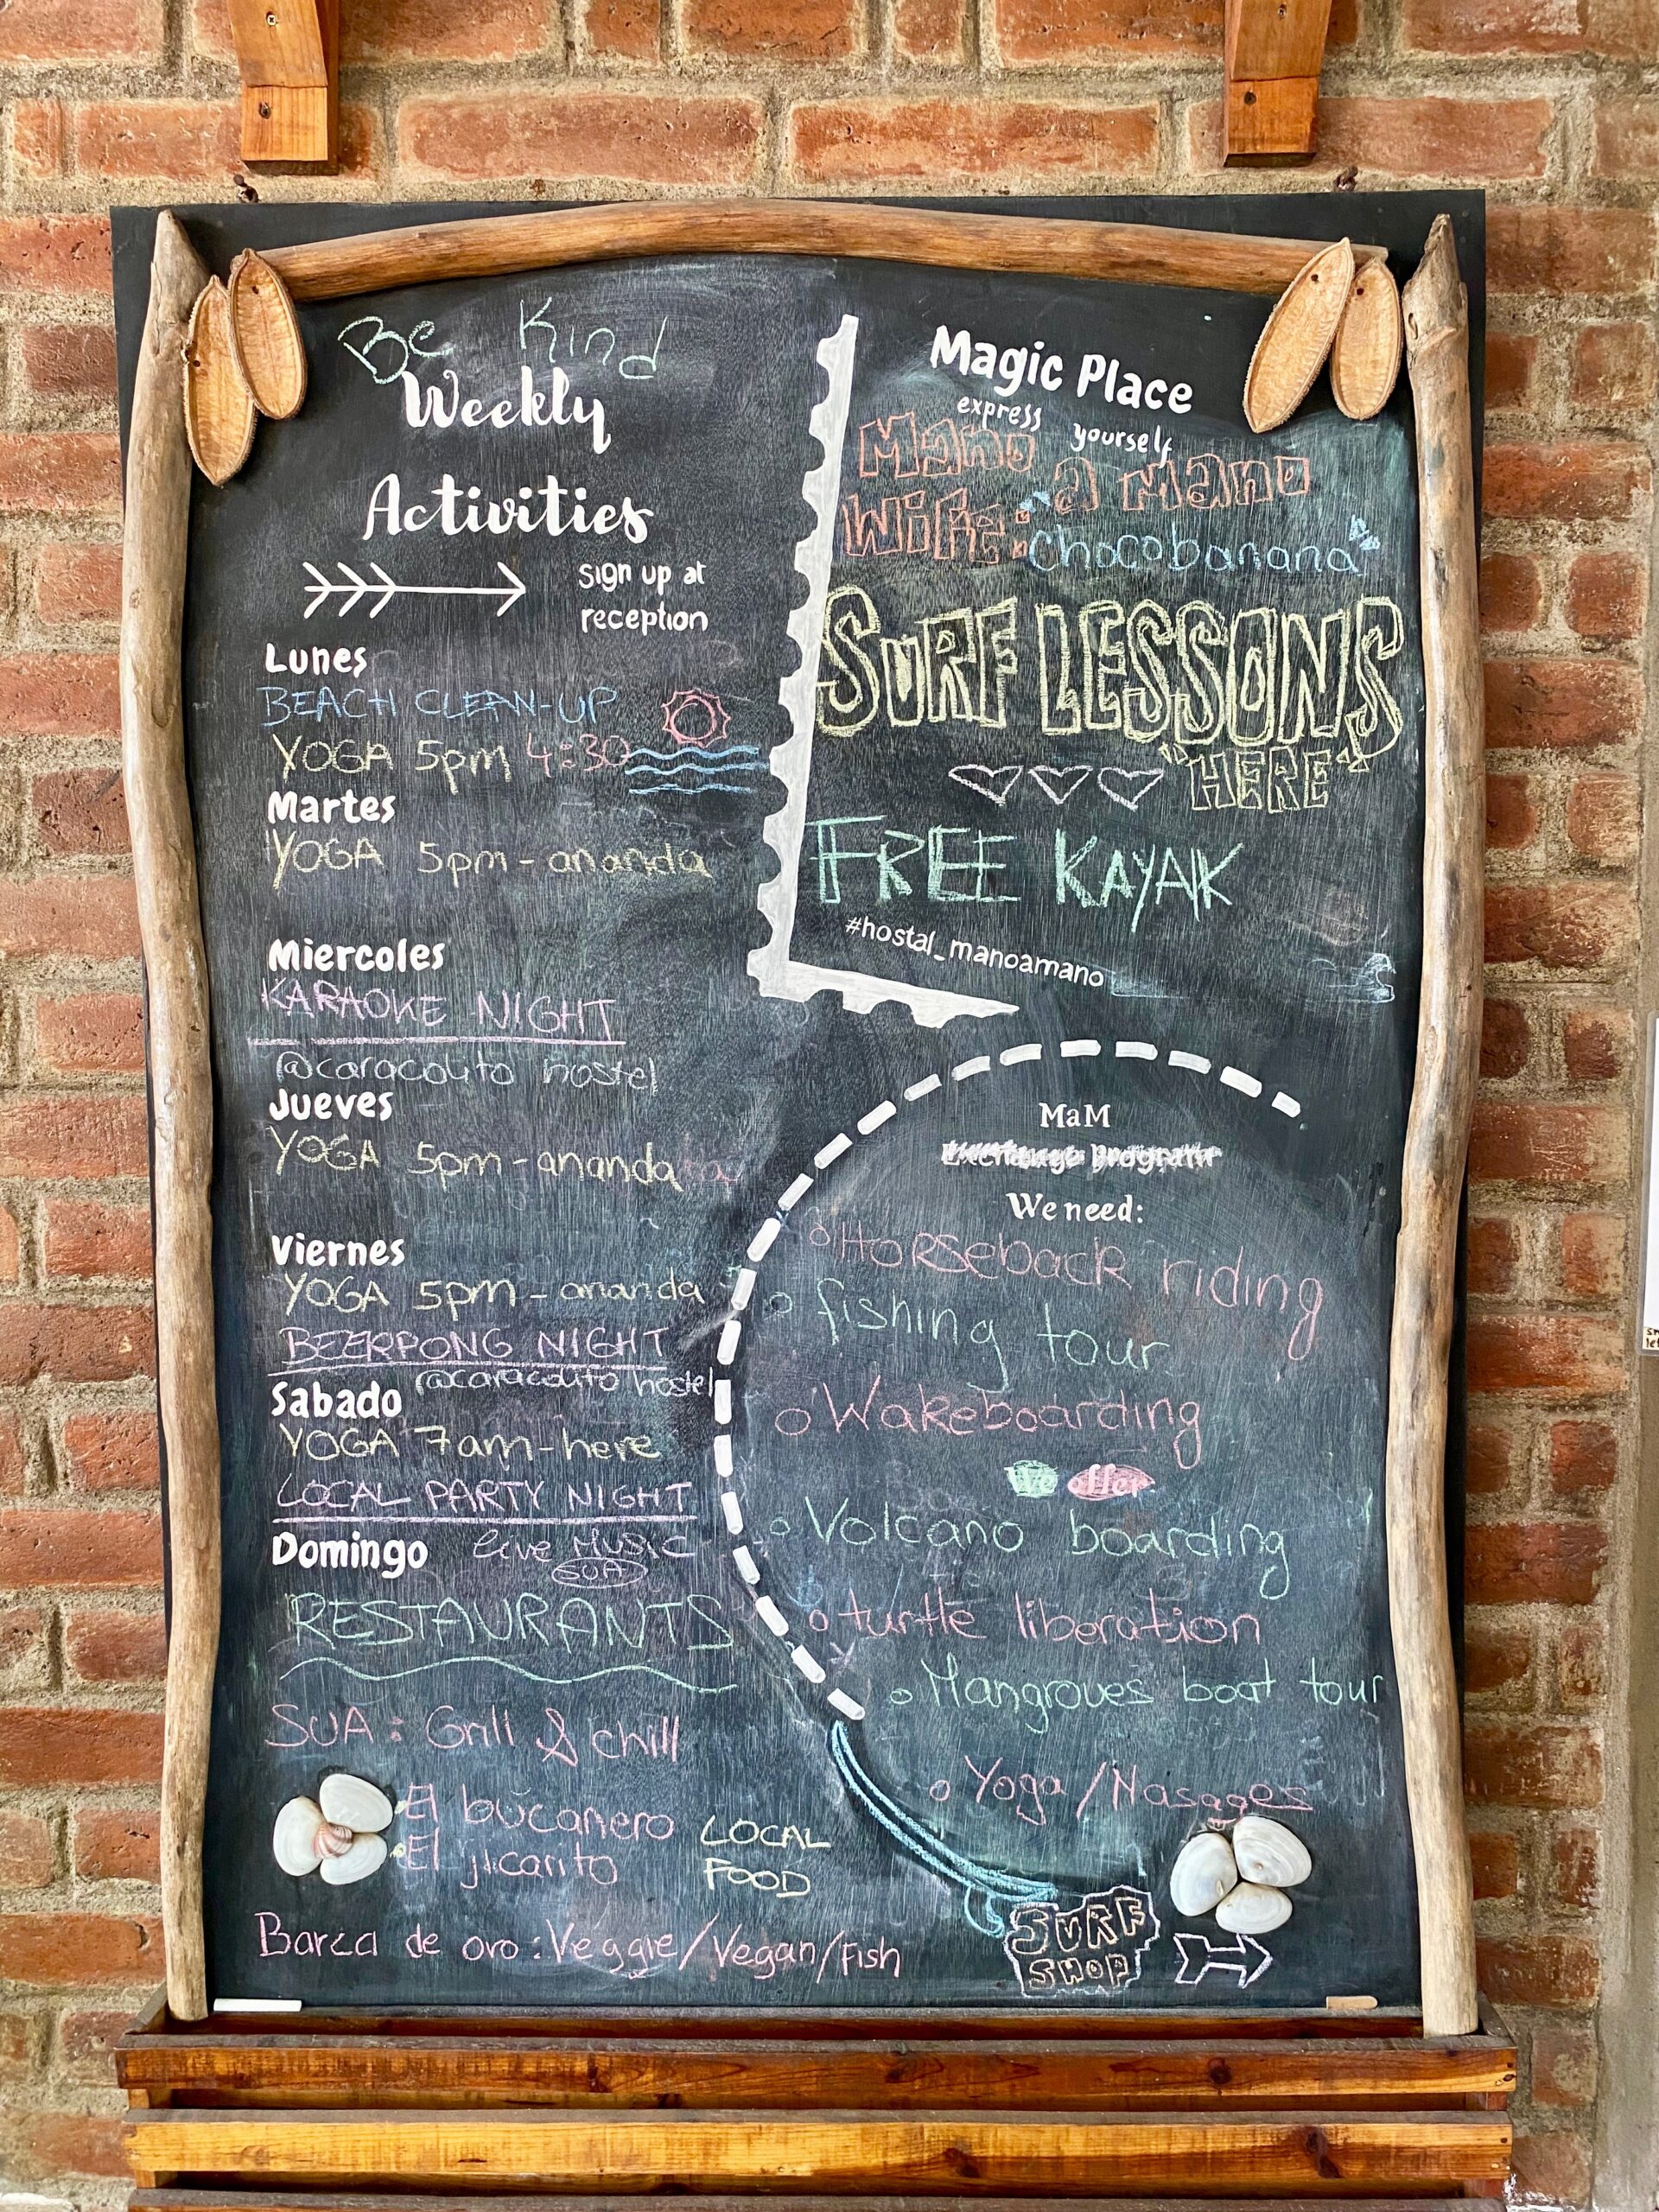 Be Kind
Weekly
Activities
sign up at
reception
Lunes
BEACH CLEAN-UP
YOGA 5pm 4:30
Martes
YOGA 5pm - ananda
Miercoles
KARAOKE NIGHT
@caracolito hostel
Jueves
YOGA 5pm - ananda
Viernes
YOGA 5pm - ananda
BEERPONG NIGHT
@caracolito hostel
Sabado
YOGA 7am - here
LOCAL PARTY NIGHT
Domingo live MUSIC
SUA
RESTAURANTS
SUA: Grill & chill
El bucanero
El jicarito
LOCAL
FOOD
Barca de oro: Veggie/Vegan/Fish
Magic Place
express yourself
Mano a mano
Wifi: chocobanana
SURF LESSONS
"HERE"
FREE KAYAK
#hostal_manoamano
MaM
Exchange program
We need:
Horseback riding
fishing tour
Wakeboarding
We offer
Volcano boarding
turtle liberation
Mangroves boat tour
Yoga/Masages
SURF
SHOP